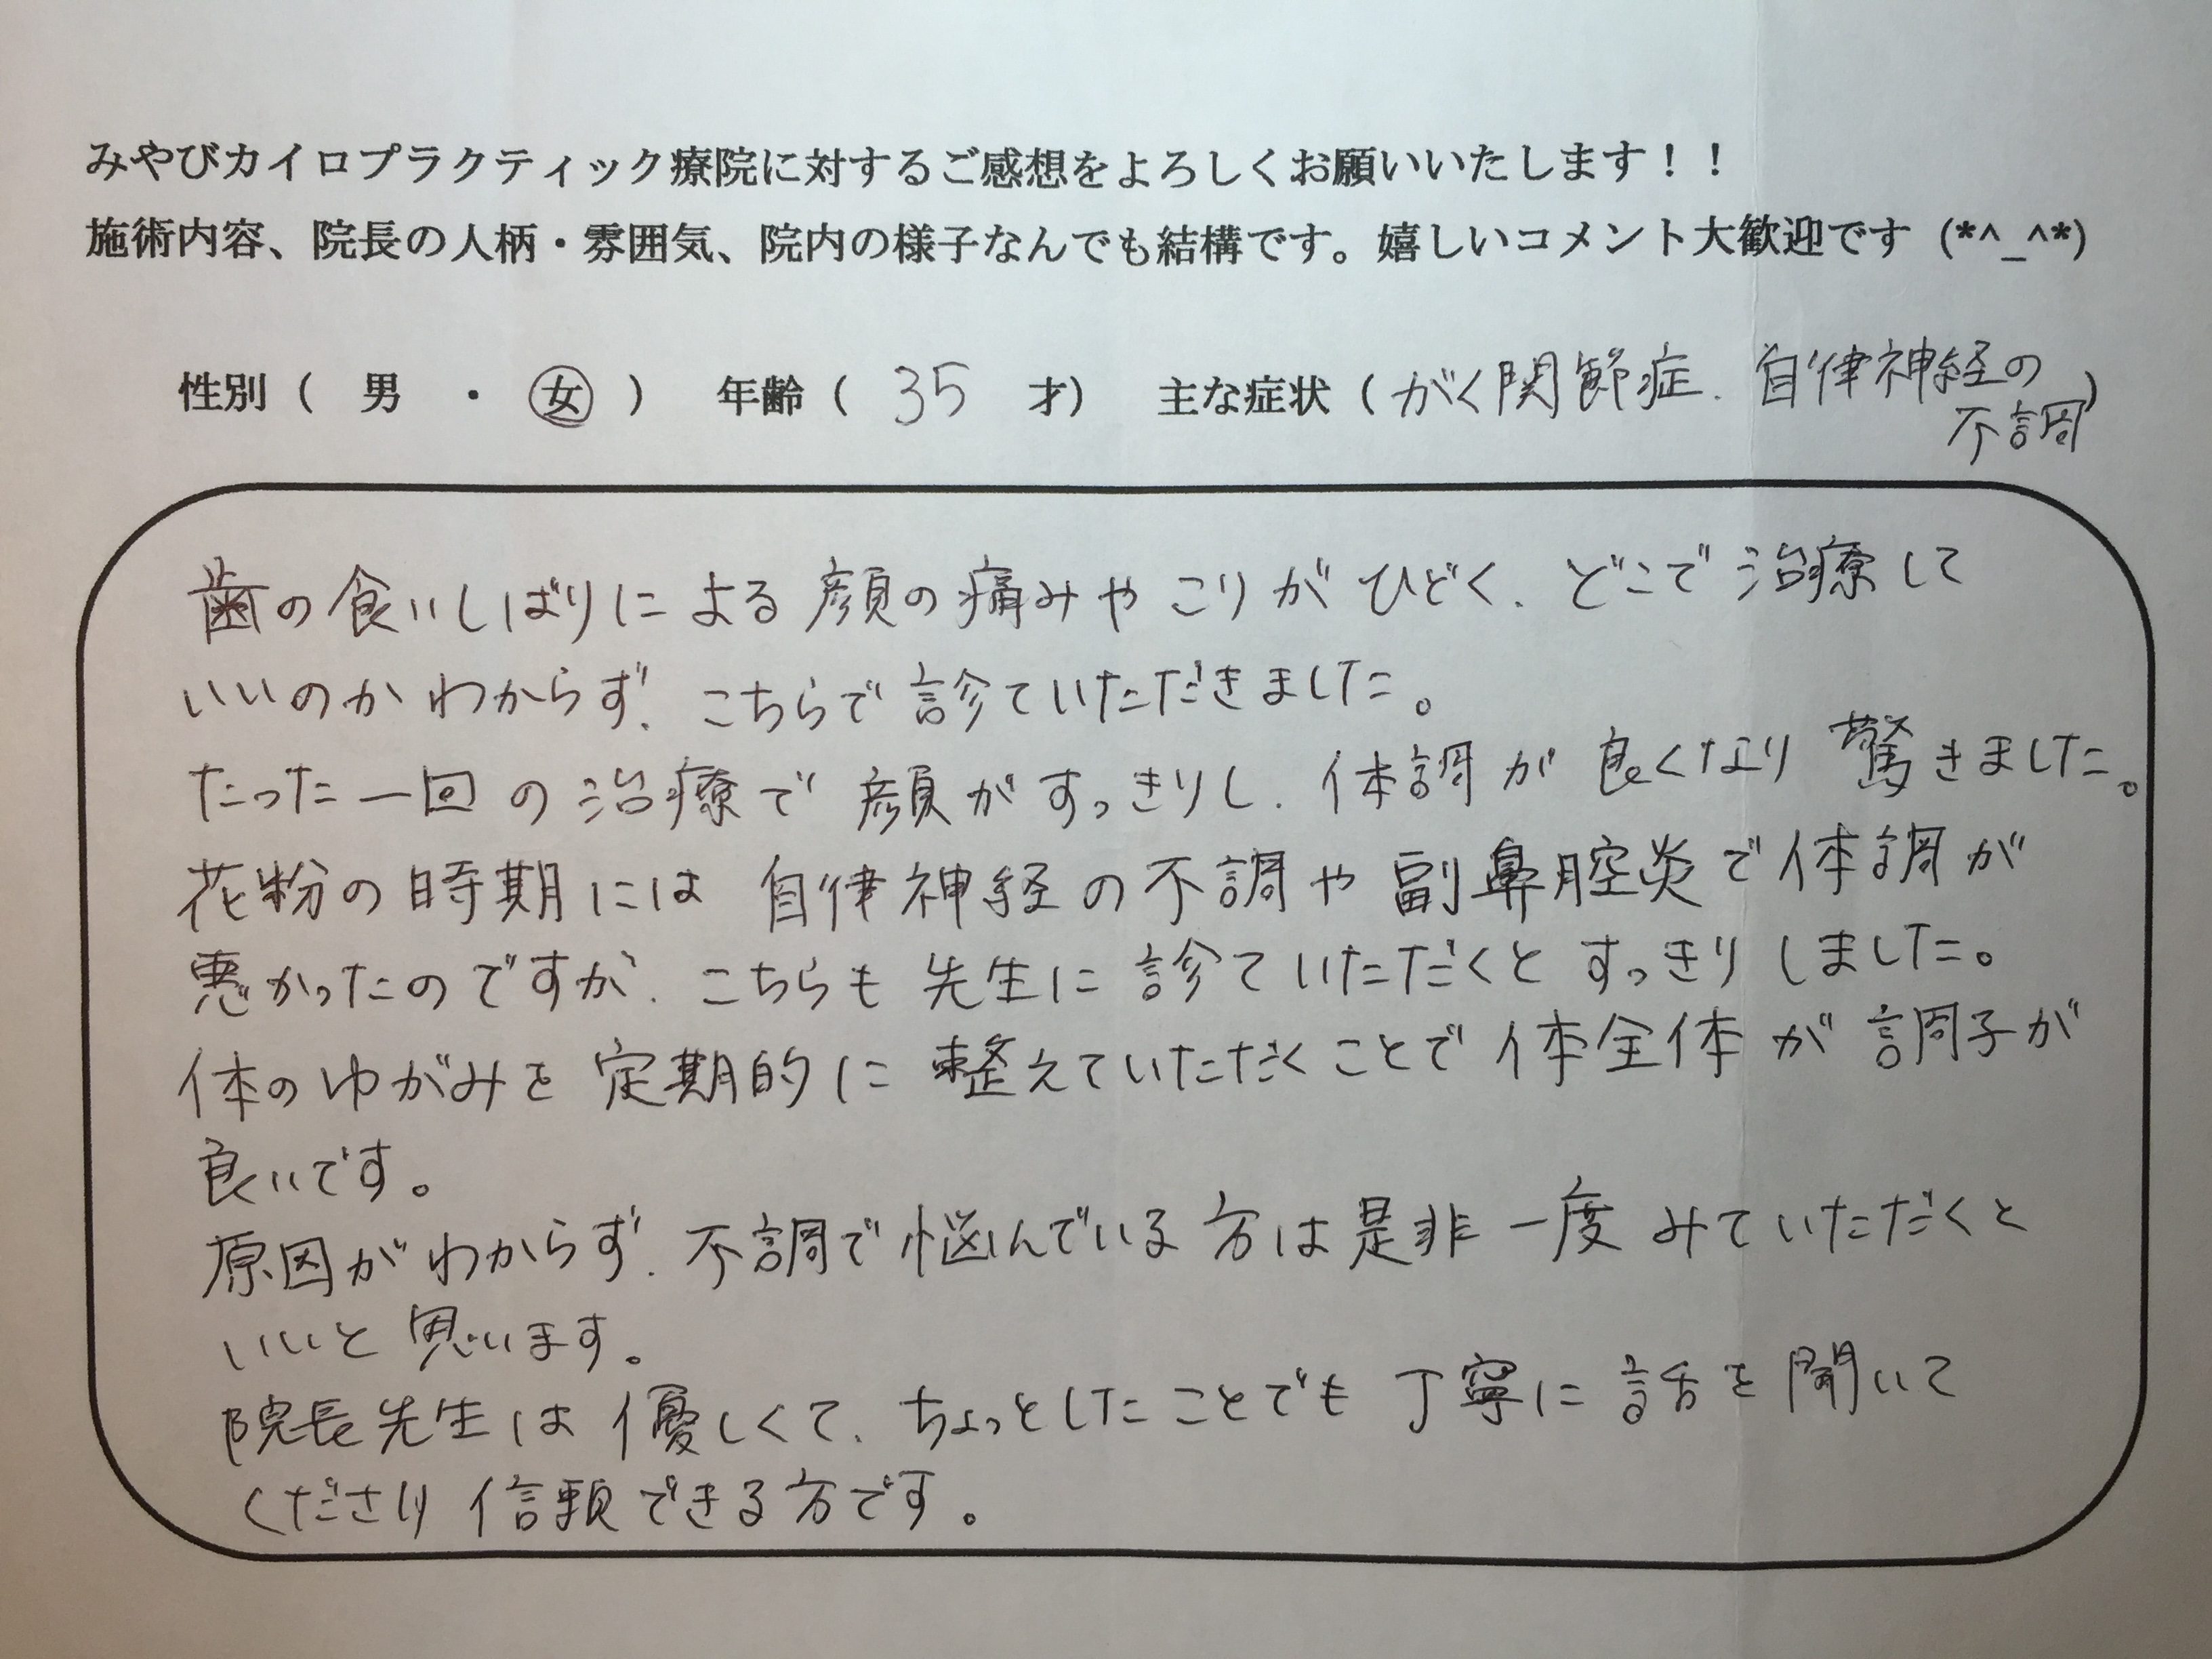 みやびカイロプラクティック療院に対するご感想をよろしくお願いいたします！！
施術内容、院長の人柄・雰囲気、院内の様子なんでも結構です。嬉しいコメント大歓迎です (*^_^*)
性別（ 男 ・ 女 ） 年齢（ 35 才） 主な症状（ がく関節症、自律神経の
不調）
歯の食いしばりによる顔の痛みやこりがひどく、どこで治療して
いいのかわからず、こちらで診ていただきました。
たった一回の治療で顔がすっきりし、体調が良くなり驚きました。
花粉の時期には自律神経の不調や副鼻腔炎で体調が
悪かったのですが、こちらも先生に診ていただくとすっきりしました。
体のゆがみを定期的に整えていただくことで体全体が調子が
良いです。
原因がわからず、不調で悩んでいる方は是非一度みていただくと
いいと思います。
院長先生は優しくて、ちょっとしたことでも丁寧に話を聞いて
くださり信頼できる方です。